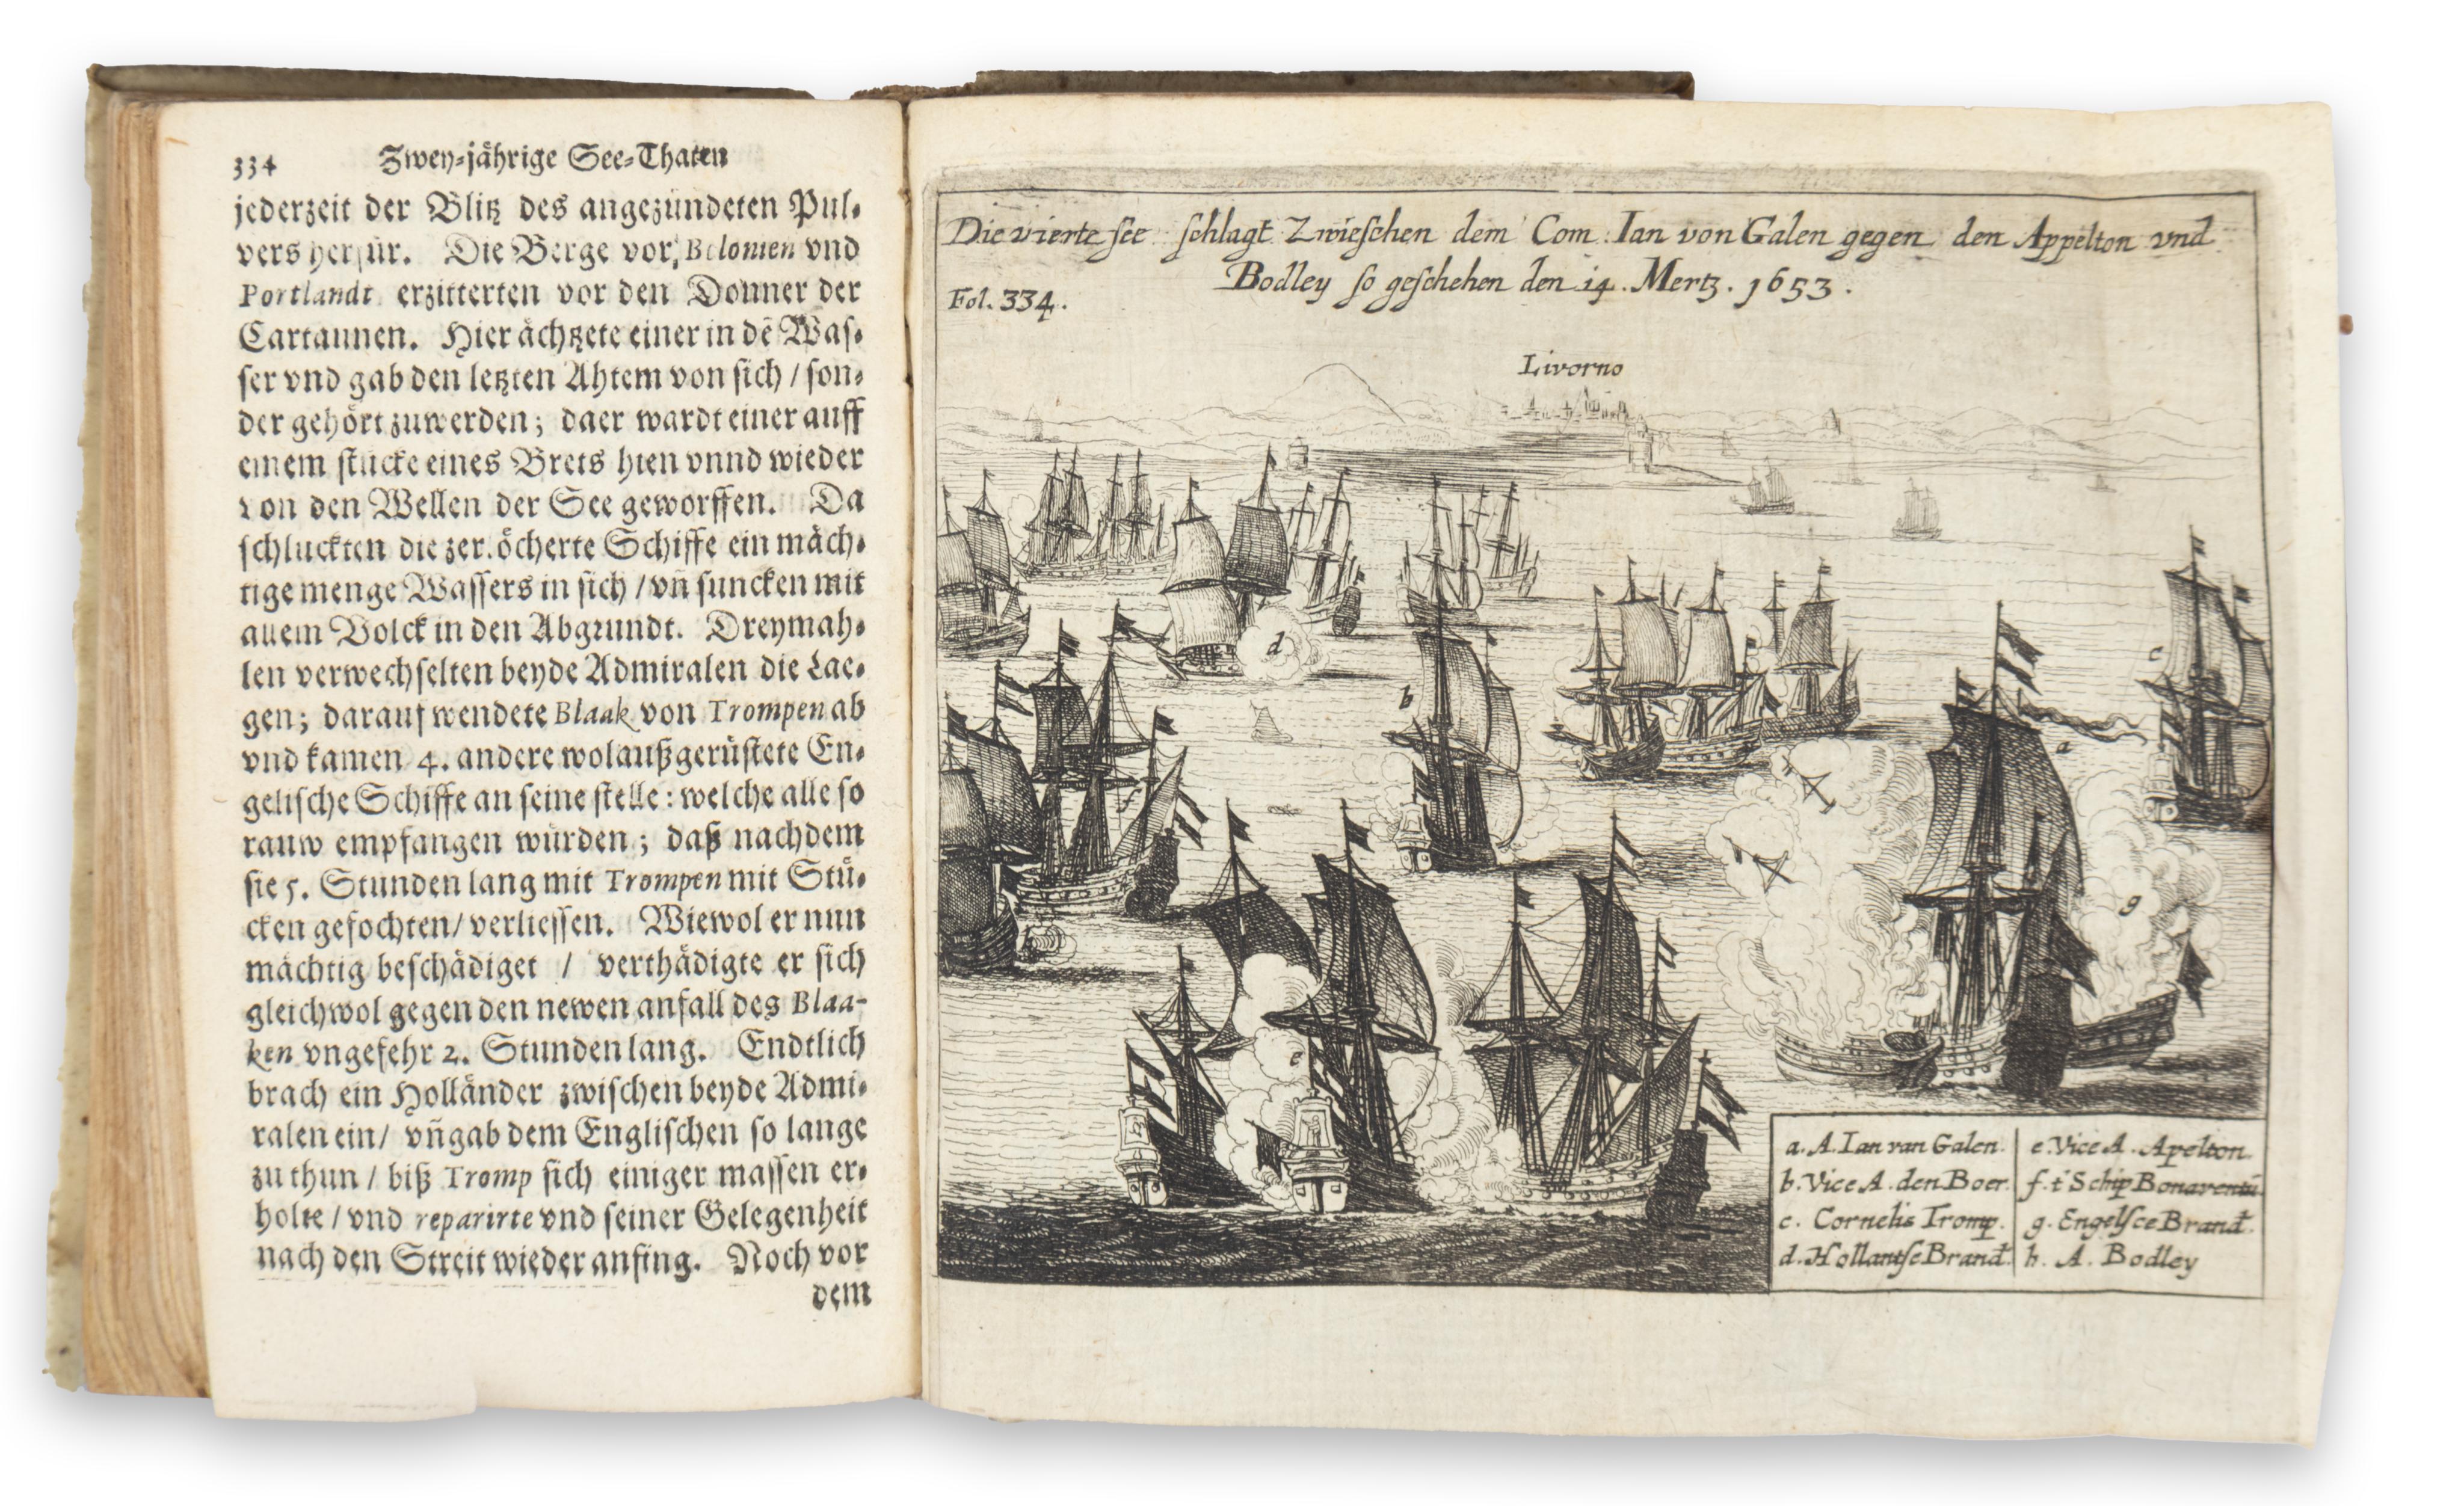 334 Zwey-jährige See-Thaten
jederzeit der Blitz des angezündeten Pul-
vers herfür. Die Berge vor Bolonien vnd
Portlandt erzitterten vor den Donner der
Cartaunen. Hier ächtzete einer in dē Was-
ser vnd gab den letzten Ahtem von sich / son-
der gehört zuwerden; daer wardt einer auff
einem stücke eines Brets hien vnnd wieder
von den Wellen der See geworffen. Da
schluckten die zerlöcherte Schiffe ein mäch-
tige menge Wassers in sich / vñ suncken mit
allem Volck in den Abgrundt. Dreymah-
len verwechselten beyde Admiralen die Lae-
gen; darauf wendete Blaak von Trompen ab
vnd kamen 4. andere wolaußgerüstete En-
gelische Schiffe an seine stelle: welche alle so
rauw empfangen würden; daß nachdem
sie 5. Stunden lang mit Trompen mit Stü-
cken gefochten/ verliessen. Wiewol er nun
mächtig beschädiget / verthädigte er sich
gleichwol gegen den newen anfall des Blaa-
ken vngefehr 2. Stunden lang. Endtlich
brach ein Holländer zwischen beyde Admi-
ralen ein/ vñ gab dem Englischen so lange
zu thun / biß Tromp sich einiger massen er-
holte / vnd reparirte vnd seiner Gelegenheit
nach den Streit wieder anfing. Noch vor
dem
Die vierte see schlagt Zwieschen dem Com. Ian von Galen gegen den Appelton vnd
Bodley so geschehen den 14. Mertz. 1653.
Fol. 334.
Livorno
d
b
c
a
f
g
e
a. A. Ian van Galen.
b. Vice A. den Boer.
c. Cornelis Tromp.
d. Hollantse Brand.
e. Vice A. Apelton.
f. t' Schip Bonaventu
g. Engelsce Brand.
h. A. Bodley